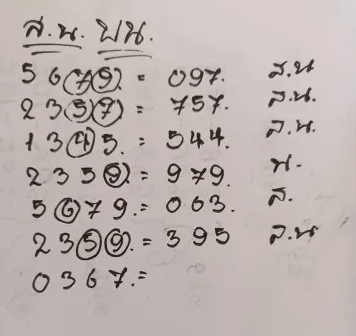 ส.น. บน.
5679 = 097. ส.น
2357 = 757. ส.น.
1345. = 544. ส.น.
2359. = 979. น.
5679. = 063. ส.
2359. = 395 ส.น
0367. =